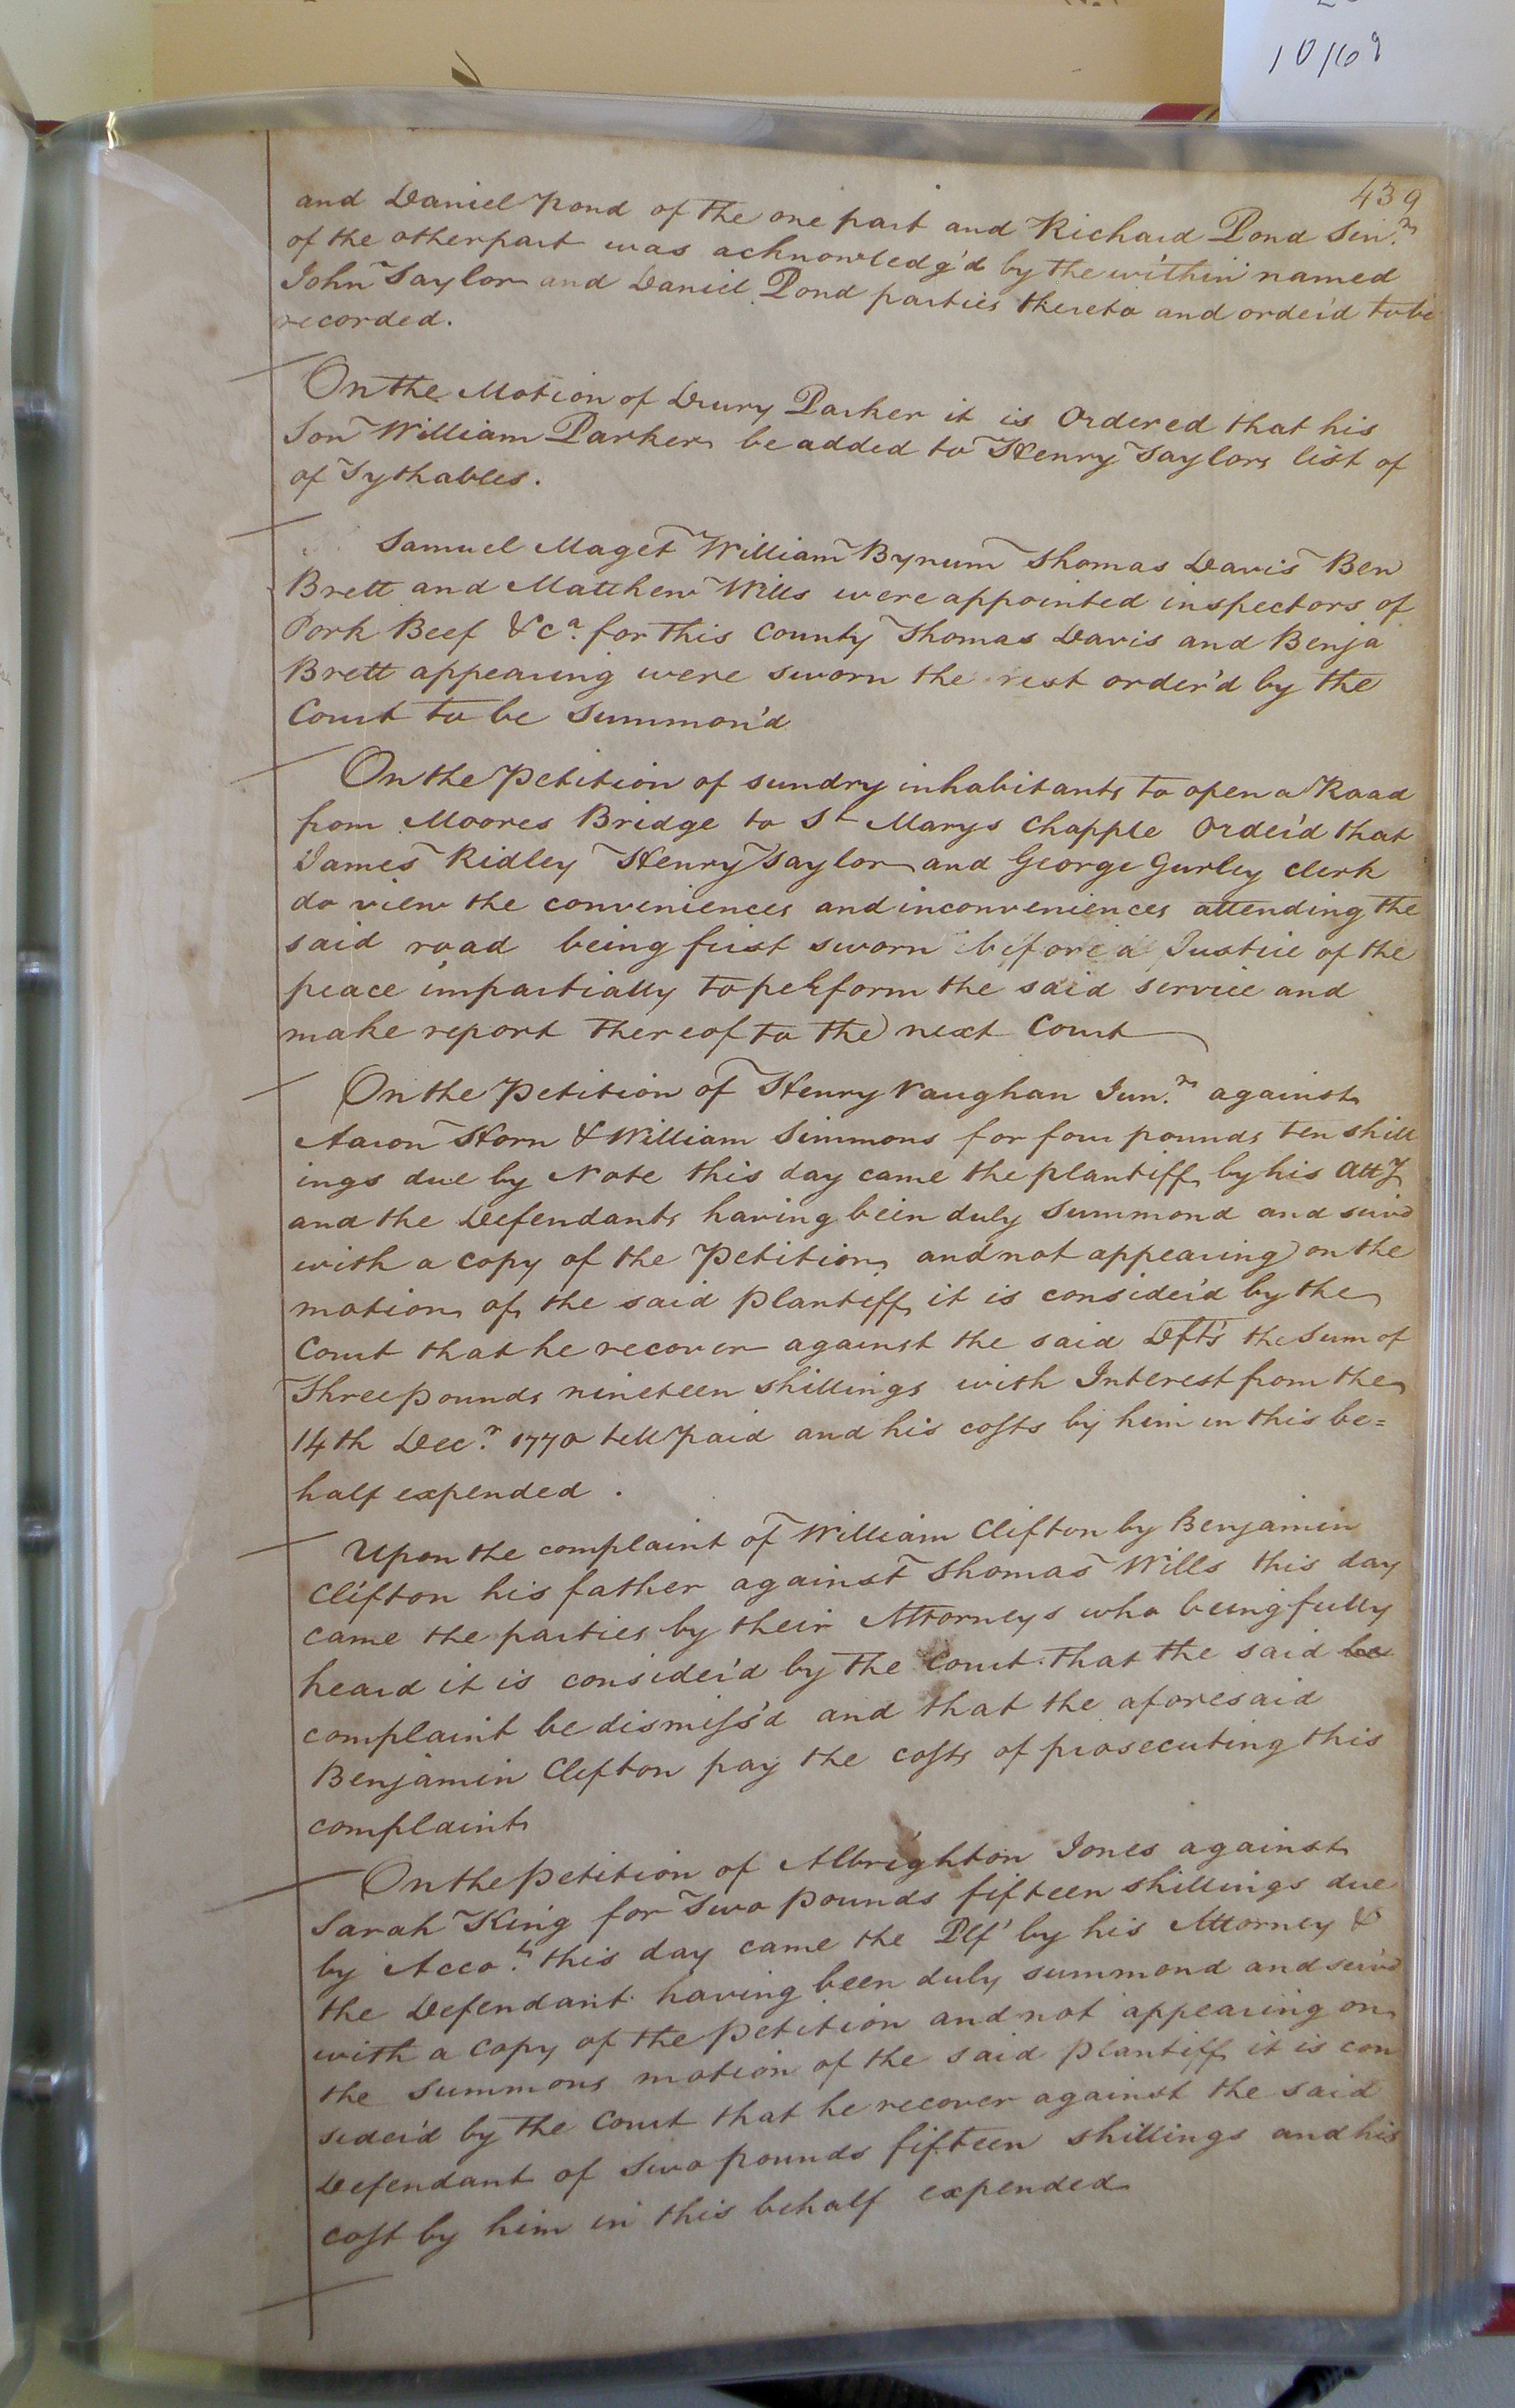 10/69
439
and Daniel Pond of the one part and Richard Pond Sen.r
of the other part was acknowledg'd by the within named
John Taylor and Daniel Pond parties thereto and order'd to be
recorded.
On the Motion of Drury Parker it is Ordered that his
Son William Parker be added to Henry Taylors list of
of Tythables.
Samuel Maget William Bynum Thomas Davis Ben
Brett and Matthew Wills were appointed inspectors of
Pork Beef &c.a for this County Thomas Davis and Benja
Brett appearing were sworn the rest order'd by the
Court to be Summon'd
On the Petition of sundry inhabitants to open a Road
from Moores Bridge to St Marys Chapple Order'd that
James Ridley Henry Taylor and George Gurley Clerk
do view the conveniences and inconveniences attending the
said road being first sworn before a Justice of the
peace impartially to perform the said service and
make report thereof to the next Court
On the Petition of Henry Vaughan Jun.r against
Aaron Horn & William Simmons for four pounds ten shill
ings due by Note this day came the plantiff by his Atty
and the Defendants having been duly Summond and serv'd
with a copy of the Petition and not appearing on the
motion of the said plantiff it is consider'd by the
Court that he recover against the said Dfts the Sum of
Three pounds nineteen shillings with Interest from the
14th Dec.r 1770 till paid and his costs by him in this be=
half expended.
Upon the complaint of William Clifton by Benjamin
Clifton his father against Thomas Wills this day
came the parties by their Attorneys who being fully
heard it is consider'd by the Court that the said
complaint be dismiss'd and that the aforesaid
Benjamin Clifton pay the costs of prosecuting this
complaint
On the petition of Albrighton Jones against
Sarah King for Two pounds fifteen shillings due
by Acco.t this day came the Plf' by his Attorney &
the Defendant having been duly summond and serv'd
with a Copy of the Petition and not appearing on
the Summons motion of the said plantiff it is con
sider'd by the Court that he recover against the said
Defendant of Two pounds fifteen shillings and his
cost by him in this behalf expended